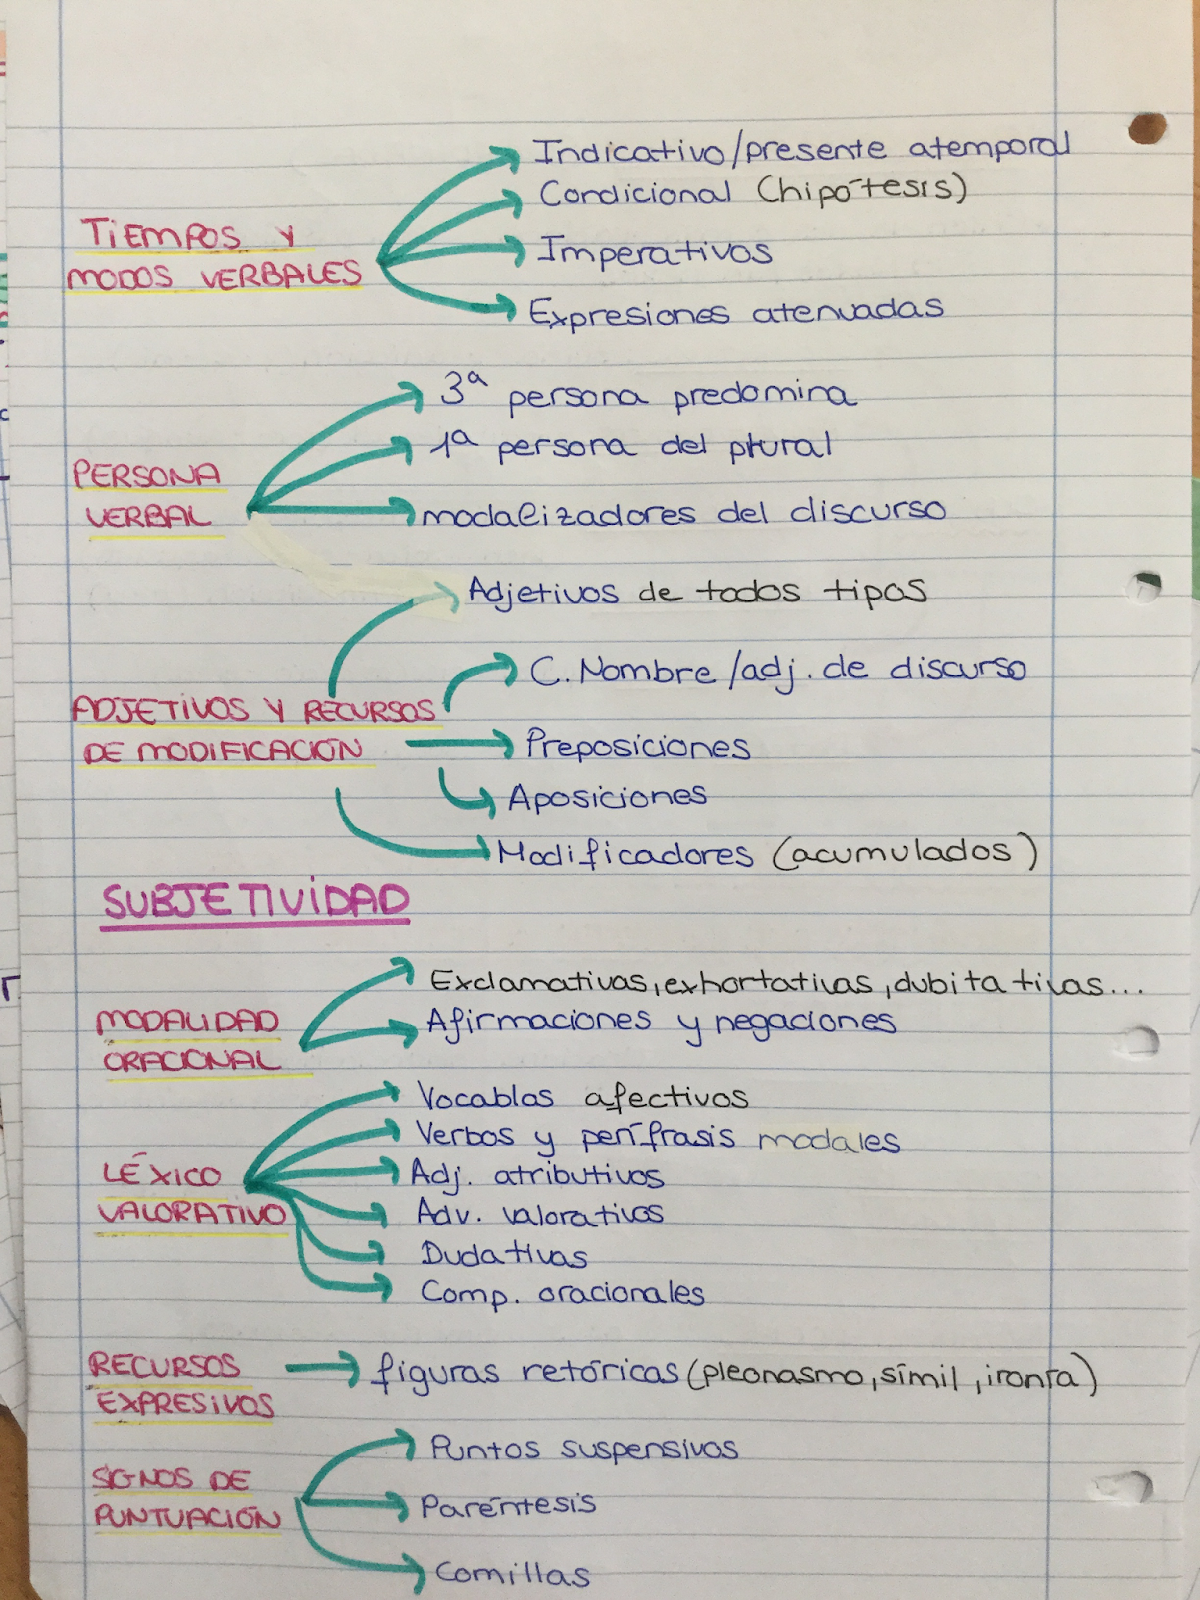 Indicativo/presente atemporal
Condicional (hipótesis)
TIEMPOS Y
MODOS VERBALES
Imperativos
Expresiones atenuadas
3ª persona predomina
1ª persona del plural
PERSONA
VERBAL
modalizadores del discurso
Adjetivos de todos tipos
C. Nombre/adj. de discurso
ADJETIVOS Y RECURSOS
DE MODIFICACIÓN
Preposiciones
Aposiciones
Modificadores (acumulados)
SUBJETIVIDAD
Exclamativas, exhortativas, dubitativas...
MODALIDAD
ORACIONAL
Afirmaciones y negaciones
Vocablos afectivos
Verbos y perífrasis modales
LÉXICO
VALORATIVO
Adj. atributivos
Adv. valorativos
Dudativas
Comp. oracionales
RECURSOS
EXPRESIVOS
figuras retóricas (pleonasmo, símil, ironía)
Puntos suspensivos
SIGNOS DE
PUNTUACIÓN
Paréntesis
Comillas